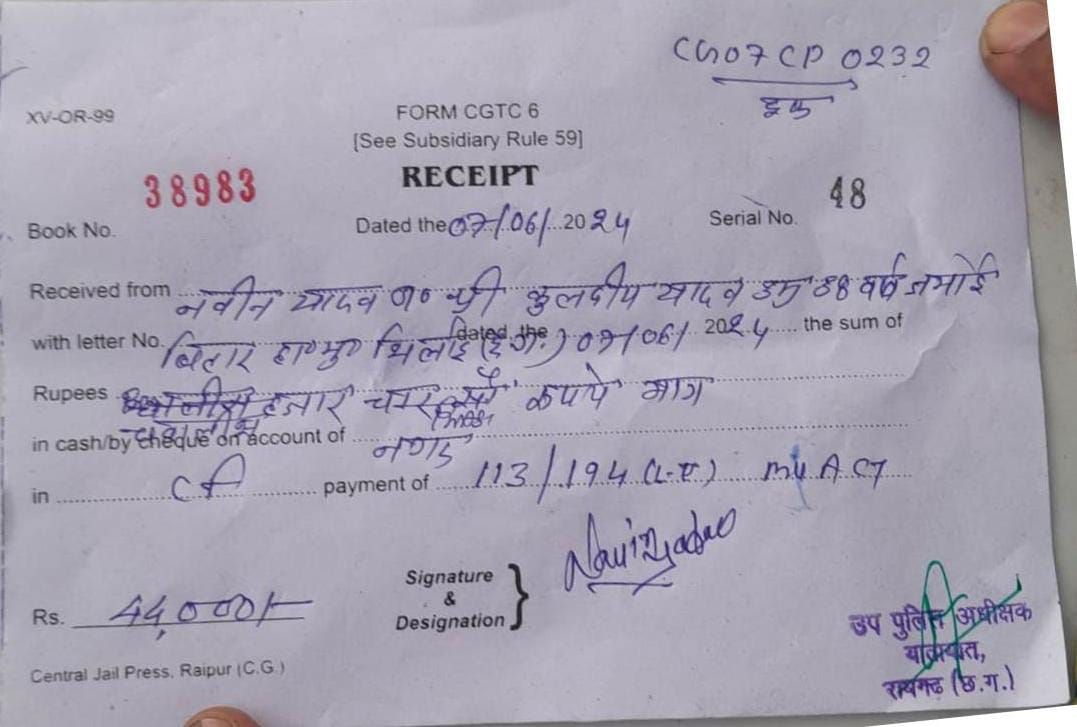 CG07 CP 0232
XV-OR-99
FORM CGTC 6
[See Subsidiary Rule 59]
RECEIPT
Book No. 38983 Dated the 07/06/2024 Serial No. 48
Received from नवीन यादव श्री कुलदीप यादव उम्र वर्ष जमोई
with letter No. बिहार भिलाई dated the 07/06/2024 the sum of
Rupees हजार रूपये मात्र
in cash/by cheque on account of नगद
in payment of 113/194 MV ACT
Signature
&
Designation
Rs. 44,000/-
उप पुलिस अधीक्षक
यातायात,
रायगढ (छ.ग.)
Central Jail Press, Raipur (C.G.)